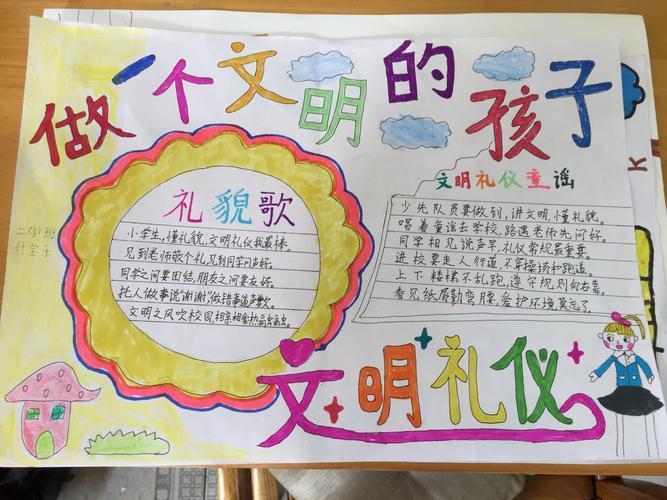 做一个文明的孩子
礼貌歌
小学生,懂礼貌,文明礼仪我最棒。
见到老师敬个礼,见到同学问声好。
同学之间要团结,朋友之间要友好。
托人做事说"谢谢",做错事道声歉。
文明之风吹校园,
文明礼仪童谣
少先队员要做到,讲文明,懂礼貌。
唱着童谣去学校,路遇老师先问好。
同学相见说声早,礼仪常规最重要。
进校要走人行道,不穿操场和跑道。
上下楼梯不乱跑,遵守规则向右靠。
看见纸屑勤弯腰,爱护环境莫忘了。
文明礼仪